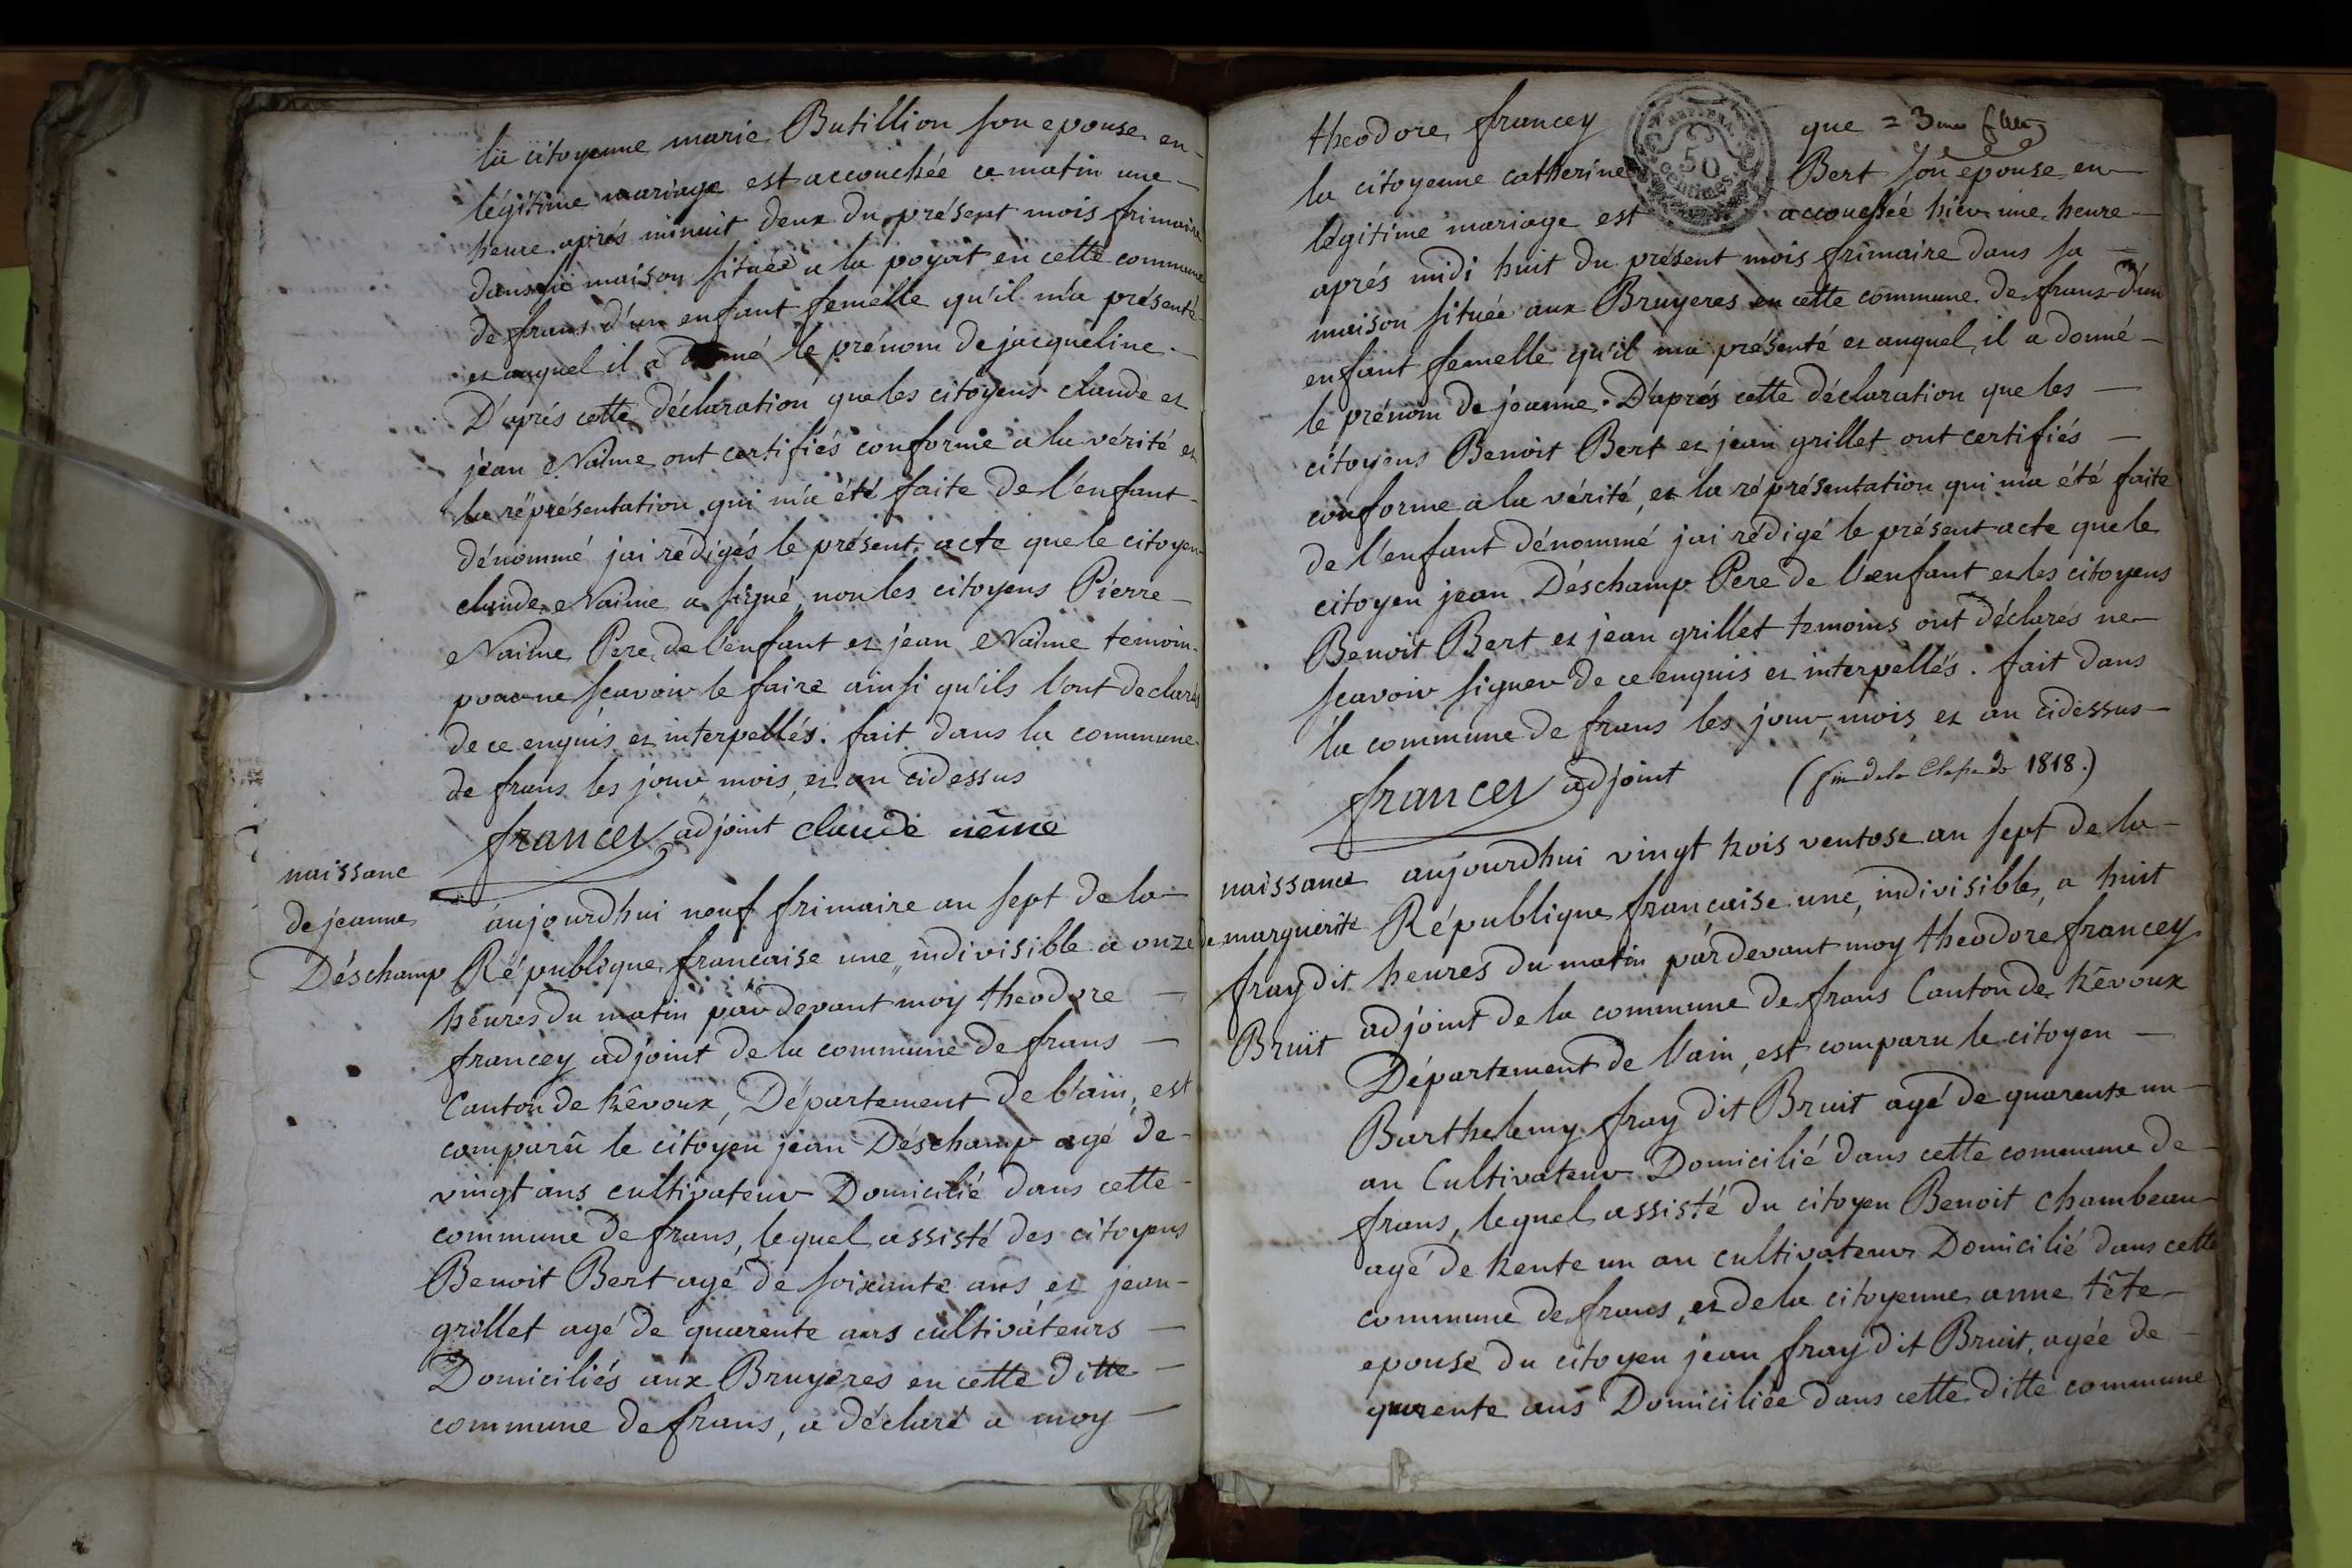 la citoyenne marie Butillion son epouse en
légitime mariage est accouchée ce matin une
heure aprés minuit deux du présent mois frimaire
dans sa maison située a la poyat en cette commune
de frans d'un enfant femelle qu'il m'a présenté
et auquel il a donné le prénom de jacqueline
D'aprés cette déclaration que les citoyens claude et
jean Naime ont certifiés conforme a la vérité et
la réprésentation qui m'a été faite de l'enfant
dénommé jai rédigés le présent acte que le citoyen
claude Naime a signé, non les citoyens Pierre
Naime Pere de l'enfant et jean Naime temoin
pour ne scavoir le faire ainsi qu'ils l'ont declarés
de ce enquis et interpellés. fait dans la commune
de frans les jour, mois, et an cidessus
francey adjoint claude néme
naissanc
de jeanne
Déschamp
aujourdhui neuf frimaire an sept de la
République francaise une, indivisible a onze
heures du matin pardevant moy theodore
francey adjoint de la commune de frans
Canton de trévoux, Département de l'ain, est
comparû le citoyen jean Déschamp agé de
vingt ans cultivateur Domicilié dans cette
commune de frans, lequel assisté des citoyens
Benoit Bert agé de soixante ans et jean
grillet agé de quarente ans cultivateurs
Domiciliés aux Bruyeres en cette ditte
commune de frans, a déclaré a moy
theodore francey que = 3me
50 centimes
la citoyenne catherine Bert son epouse en
légitime mariage est accouchée hier une heure
aprés midi huit du présent mois frimaire dans sa
maison située aux Bruyeres en cette commune de frans d'un
enfant femelle qu'il ma présenté et auquel il a donné
le prénom de jeanne. D'aprés cette déclaration que les
citoyens Benoit Bert et jean grillet ont certifiés
conforme a la vérité, et la réprésentation qui m'a été faite
de l'enfant dénommé jai rédigé le présent acte que le
citoyen jean Déschamp Pere de l'enfant et les citoyens
Benoit Bert et jean grillet temoins ont déclarés ne
scavoir signer de ce enquis et interpellés. fait dans
la commune de frans les jour, mois, et an cidessus
francey adjoint (fin de la Classe de 1818.)
naissance
de marguerite
fray dit
Bruit
aujourdhui vingt trois ventose an sept de la
République francaise une, indivisible, a huit
heures du matin pardevant moy theodore francey
adjoint de la commune de frans Canton de trévoux
Département de l'ain, est comparu le citoyen
Barthelemy fray dit Bruit agé de quarente un
an Cultivateur Domicilié dans cette commune de
frans, lequel assisté du citoyen Benoit chambeau
agé de trente un an cultivateur Domicilié dans cette
commune de frans, et de la citoyenne anne tête
epouse du citoyen jean fray dit Bruit, agée de
quarente ans Domiciliée dans cette ditte commune